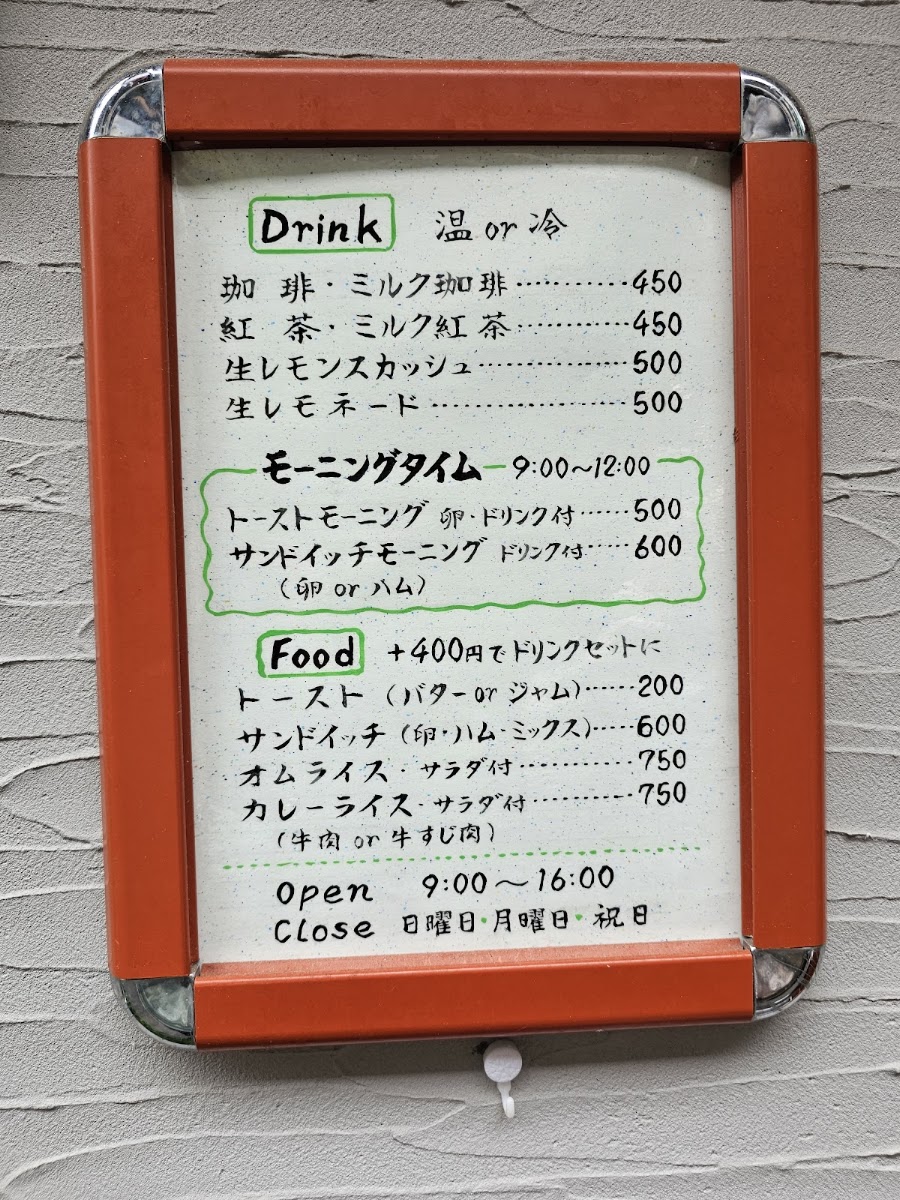 Drink 温 or 冷
珈 琲・ミルク珈琲…………450
紅 茶・ミルク紅茶…………450
生レモンスカッシュ…………500
生レモネード…………500
モーニングタイム 9:00～12:00
トーストモーニング 卵・ドリンク付……500
サンドイッチモーニング ドリンク付……600
(卵 or ハム)
Food +400円でドリンクセットに
トースト (バター or ジャム)……200
サンドイッチ (卵・ハム・ミックス)……600
オムライス・サラダ付…………750
カレーライス・サラダ付…………750
(牛肉 or 牛すじ肉)
Open 9:00～16:00
Close 日曜日・月曜日・祝日